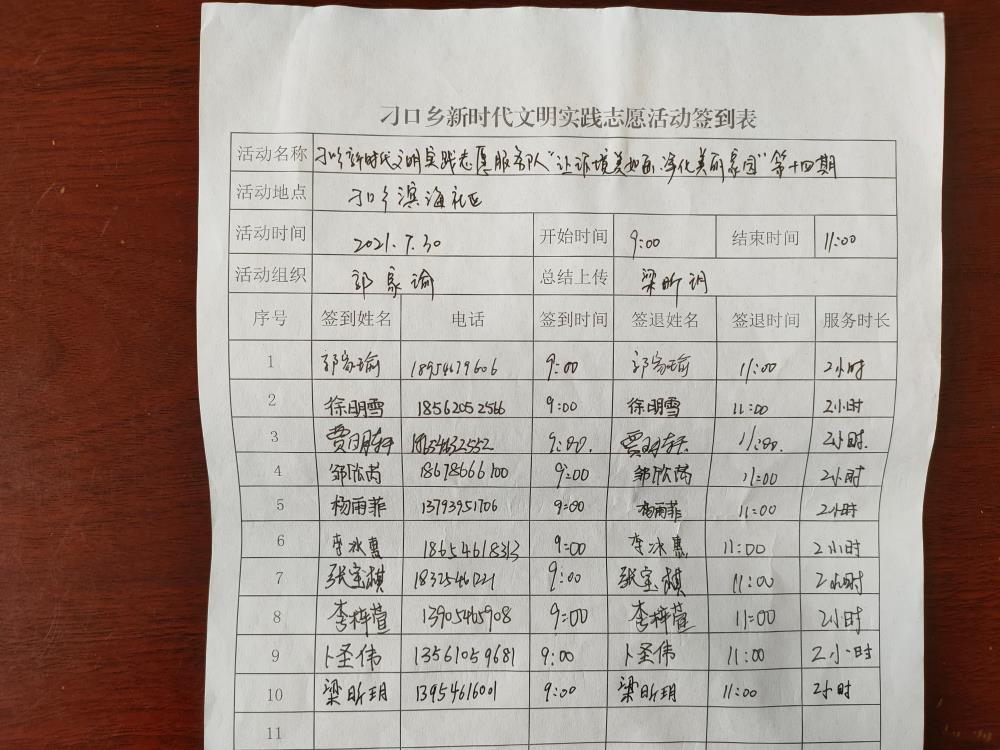 刁口乡新时代文明实践志愿活动签到表
活动名称 刁口乡新时代文明实践志愿服务队"让环境美如画、净化美丽家园"第十四期
活动地点 刁口乡滨海社区
活动时间 2021.7.30 开始时间 9:00 结束时间 11:00
活动组织 郭家瑜 总结上传 梁昕玥
序号 签到姓名 电话 签到时间 签退姓名 签退时间 服务时长
1 郭家瑜 18954679606 9:00 郭家瑜 11:00 2小时
2 徐明雪 18562052566 9:00 徐明雪 11:00 2小时
3 贾明轩 9:00. 贾明轩 11:00. 2小时.
4 邹欣芮 18678666100 9:00 邹欣芮 11:00 2小时
5 杨雨菲 13793951706 9:00 杨雨菲 11:00 2小时
6 李冰惠 18654618313 9:00 李冰惠 11:00 2小时
7 张宝棋 9:00 张宝棋 11:00 2小时
8 李梓萱 13905465908 9:00 李梓萱 11:00 2小时
9 卜圣伟 13561059681 9:00 卜圣伟 11:00 2小时
10 梁昕玥 13954616001 9:00 梁昕玥 11:00 2小时
11